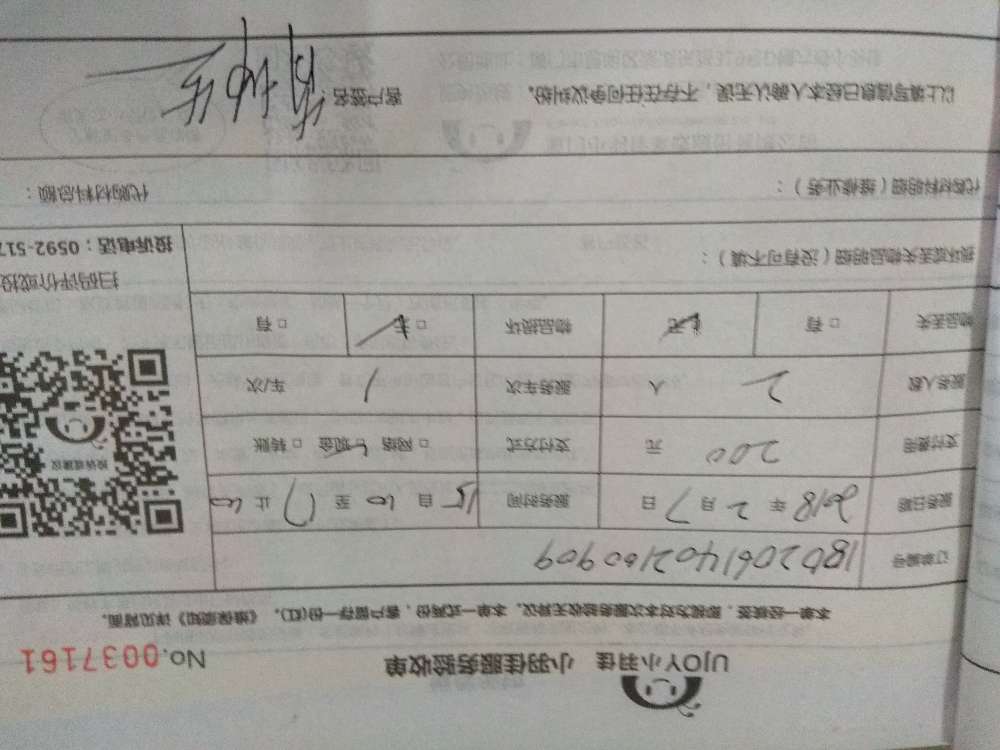 UJOY小羽佳 小羽佳服务验收单 No.0037161
本单一经接签，即视为对本次服务验收无异议。本单一式两份，客户留存一份(红)。《维保须知》详见背面。
订单编号 1802061402100909
服务日期 2018 年 2 月 7 日 服务时间 15 自 00 至 17 止 00
支付费用 200 元 支付方式 □网络 现金 □转账
服务人数 2 人 服务车次 1 车/次
物品丢失 □有 无 物品损坏 □无 □有
投诉或建议
损坏或丢失物品明细（没有可不填）：
扫码评价或投
投诉电话：0592-517
代购材料明细（维修业务）： 代购材料总额：
以上填写信息已经本人确认无误，不存在任何争议纠纷。 客户签名：